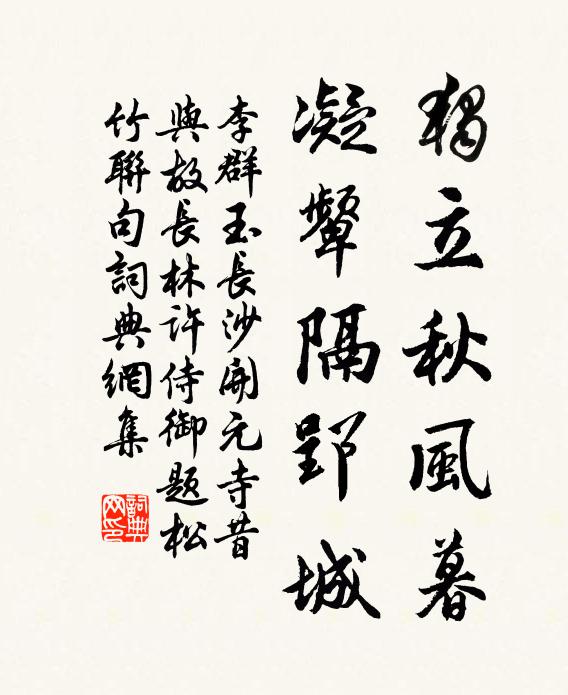 獨立秋風暮
凝顰隔郢城
李群玉長沙開元寺昔
與故長林許侍御題松
竹聯句詞典網集
詞典網印